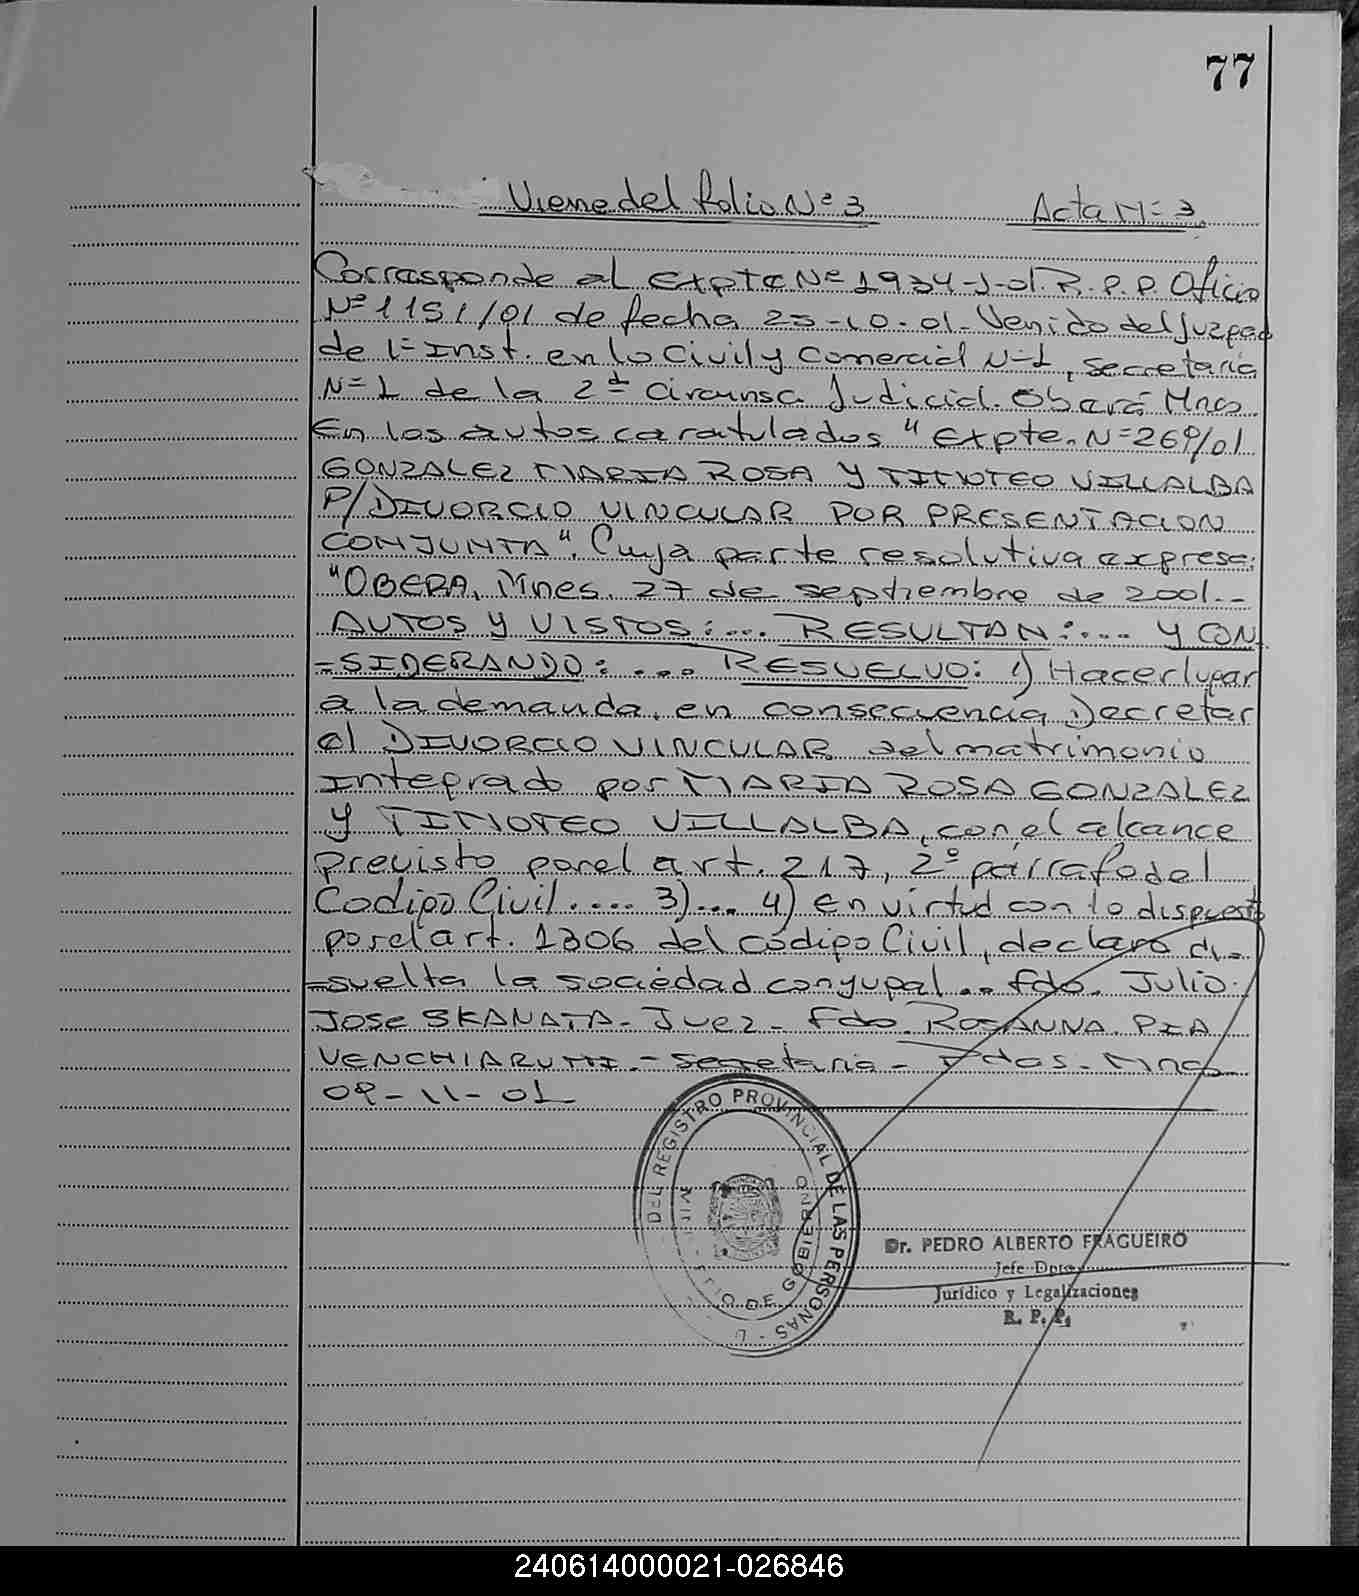 77
Viene del folio Nº 3 Acta Nº 3
Corresponde al Expte Nº 1934-J-01. R.P.P. Oficio
Nº 1151/01 de fecha 23-10-01. Venido del Juzgad
de 1º Inst. en lo Civil y Comercial Nº 1, Secretaria
Nº 1 de la 2da Circunsc. Judicial. Oberá Mnes.
En los autos caratulados "Expte. Nº 269/01
GONZALEZ MARIA ROSA Y TIMOTEO VILLALBA
P/DIVORCIO VINCULAR POR PRESENTACION
CONJUNTA". Cuya parte resolutiva expresa:
"OBERA, Mnes. 27 de septiembre de 2001.-
AUTOS Y VISTOS:... RESULTAN:... Y CON
=SIDERANDO:... RESUELVO: 1) Hacer lugar
a la demanda, en consecuencia Decretar
el DIVORCIO VINCULAR del matrimonio
Integrado por MARIA ROSA GONZALEZ
Y TIMOTEO VILLALBA, con el alcance
previsto por el art. 217, 2º párrafo del
Codigo Civil.... 3)... 4) En virtud con lo dispuest
por el art. 1306 del código Civil, declaro di=
=suelta la sociedad conyugal... fdo. Julio
JOSE SKANATA- Juez- Fdo. ROSANNA PIA
VENCHIARUTTI.- Secretaria- Pdas. Mnes
09-11-01
DEL REGISTRO PROVINCIAL DE LAS PERSONAS
MINISTERIO DE GOBIERNO
Dr. PEDRO ALBERTO FRAGUEIRO
Jefe Dpto.
Jurídico y Legalizaciones
R. P. P.
240614000021-026846